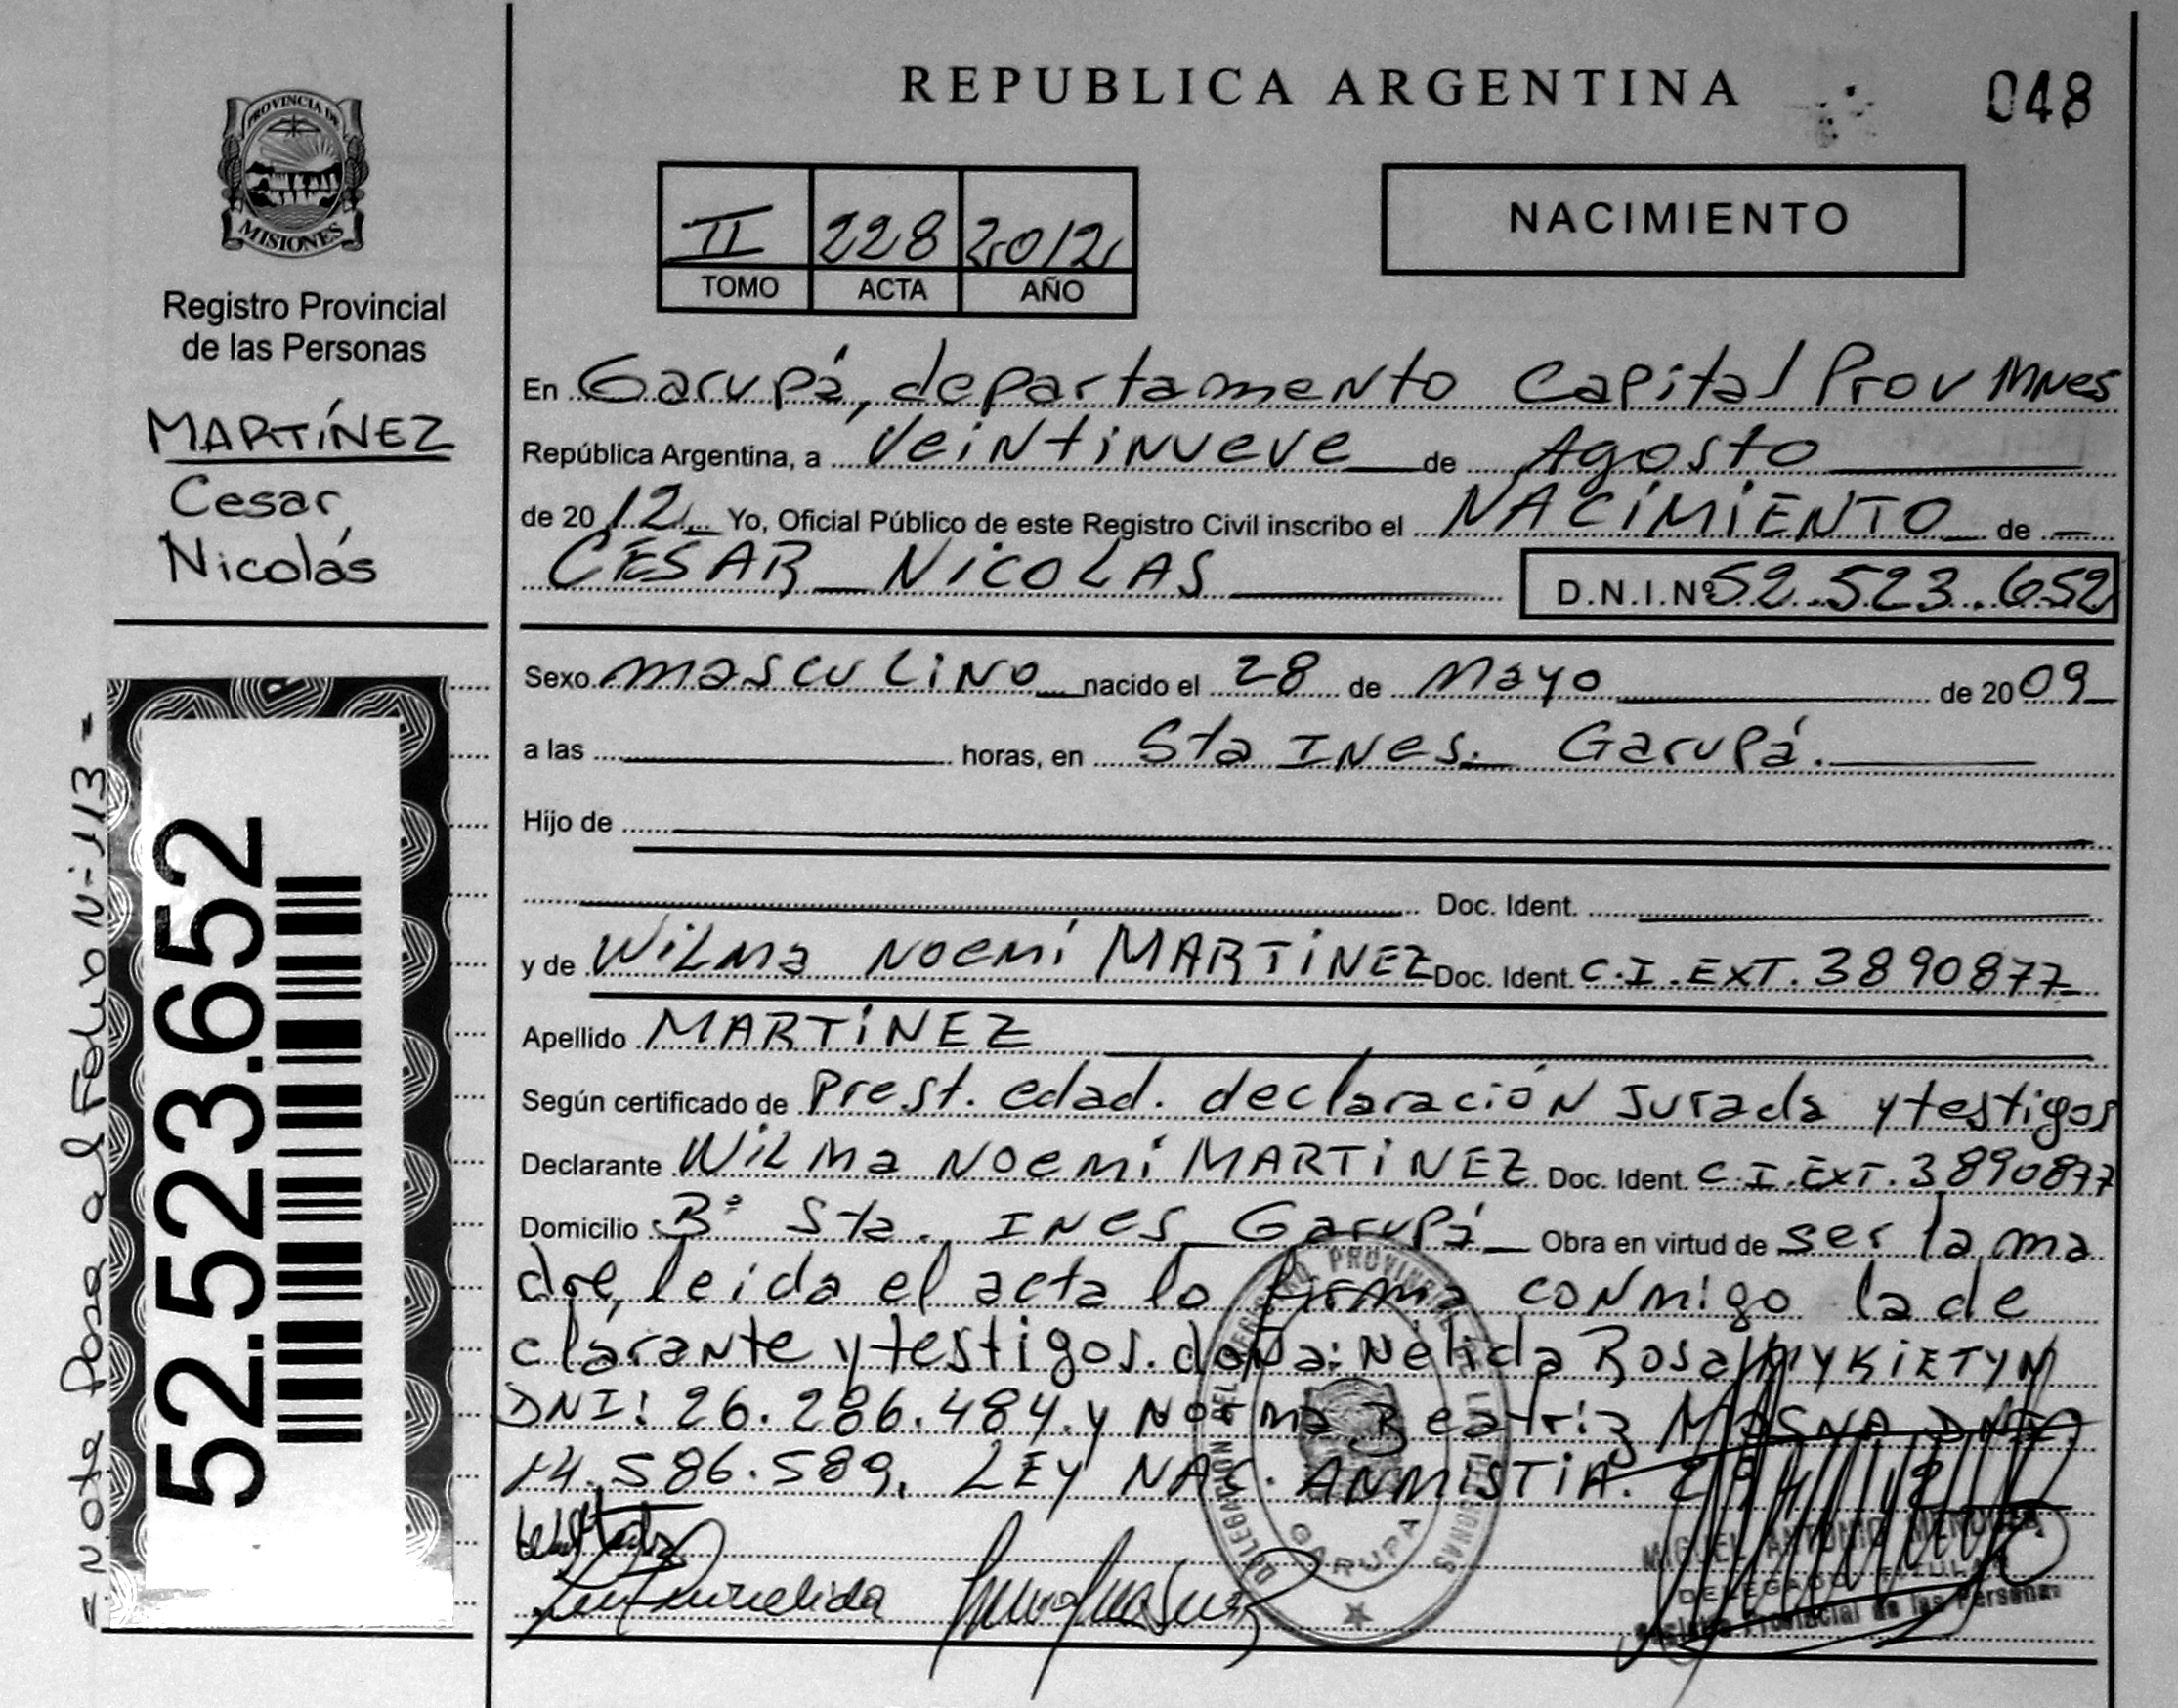 REPUBLICA ARGENTINA
048
PROVINCIA DE
MISIONES
Registro Provincial
de las Personas
MARTÍNEZ
Cesar
Nicolás
II 228 2012
TOMO ACTA AÑO
NACIMIENTO
En Garupá, departamento Capital Prov Mnes
República Argentina, a Veintinueve de Agosto
de 20 12 Yo, Oficial Público de este Registro Civil inscribo el NACIMIENTO de
CÉSAR NICOLAS D.N.I.Nº 52.523.652
Sexo masculino nacido el 28 de Mayo de 20 09
a las horas, en Sta Ines. Garupá.
Hijo de
Doc. Ident.
y de Wilma Noemí MARTINEZ Doc. Ident. C.I.EXT.3890877
Apellido MARTINEZ
Según certificado de Prest. edad. declaración Jurada y testigos
Declarante Wilma Noemí MARTINEZ Doc. Ident. C.I.EXT.3890877
Domicilio Bº Sta. INES Garupá Obra en virtud de ser la ma
dre, leida el acta lo firma conmigo la de
clarante y testigos. doña: Nélida Rosa MYKIETYN
DNI: 26.286.484. y Norma Beatriz MASNA DNI
14.586.589. LEY NAC. ANMISTIA.
52.523.652
= Nota Pasa al Folio Nº 113 =
DELEGACION DEL REGISTRO PROVINCIAL DE LAS PERSONAS
GARUPA
MIGUEL ANTONIO
DELEGADO TITULAR
Registro Provincial de las Personas